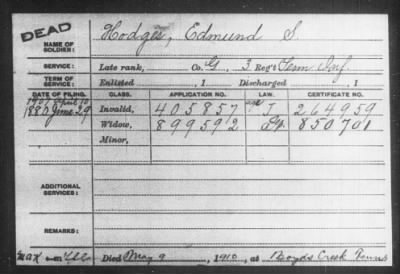 DEAD
NAME OF SOLDIER: Hodges, Edmund S.
SERVICE: Late rank, Co. G, 3 Reg't Tenn Inf.
TERM OF SERVICE: Enlisted , 1 Discharged , 1
DATE OF FILING. CLASS. APPLICATION NO. LAW. CERTIFICATE NO.
1880 June 29 Invalid, 405857 J 264959
Widow, 899592 850701
Minor,
ADDITIONAL SERVICES:
REMARKS:
Died May 9, 1910, at Boyds Creek Tenns